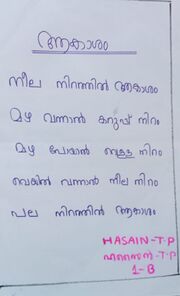 ആകാശം
നീല നിറത്തിൽ ആകാശം
മഴ വന്നാൽ കറുപ്പ് നിറം
മഴ പോയാൽ വെള്ള നിറം
വെയിൽ വന്നാൽ നീല നിറം
പല നിറത്തിൽ ആകാശം
HASAIN-T-P
ഹസൈൻ-T-P
1-B